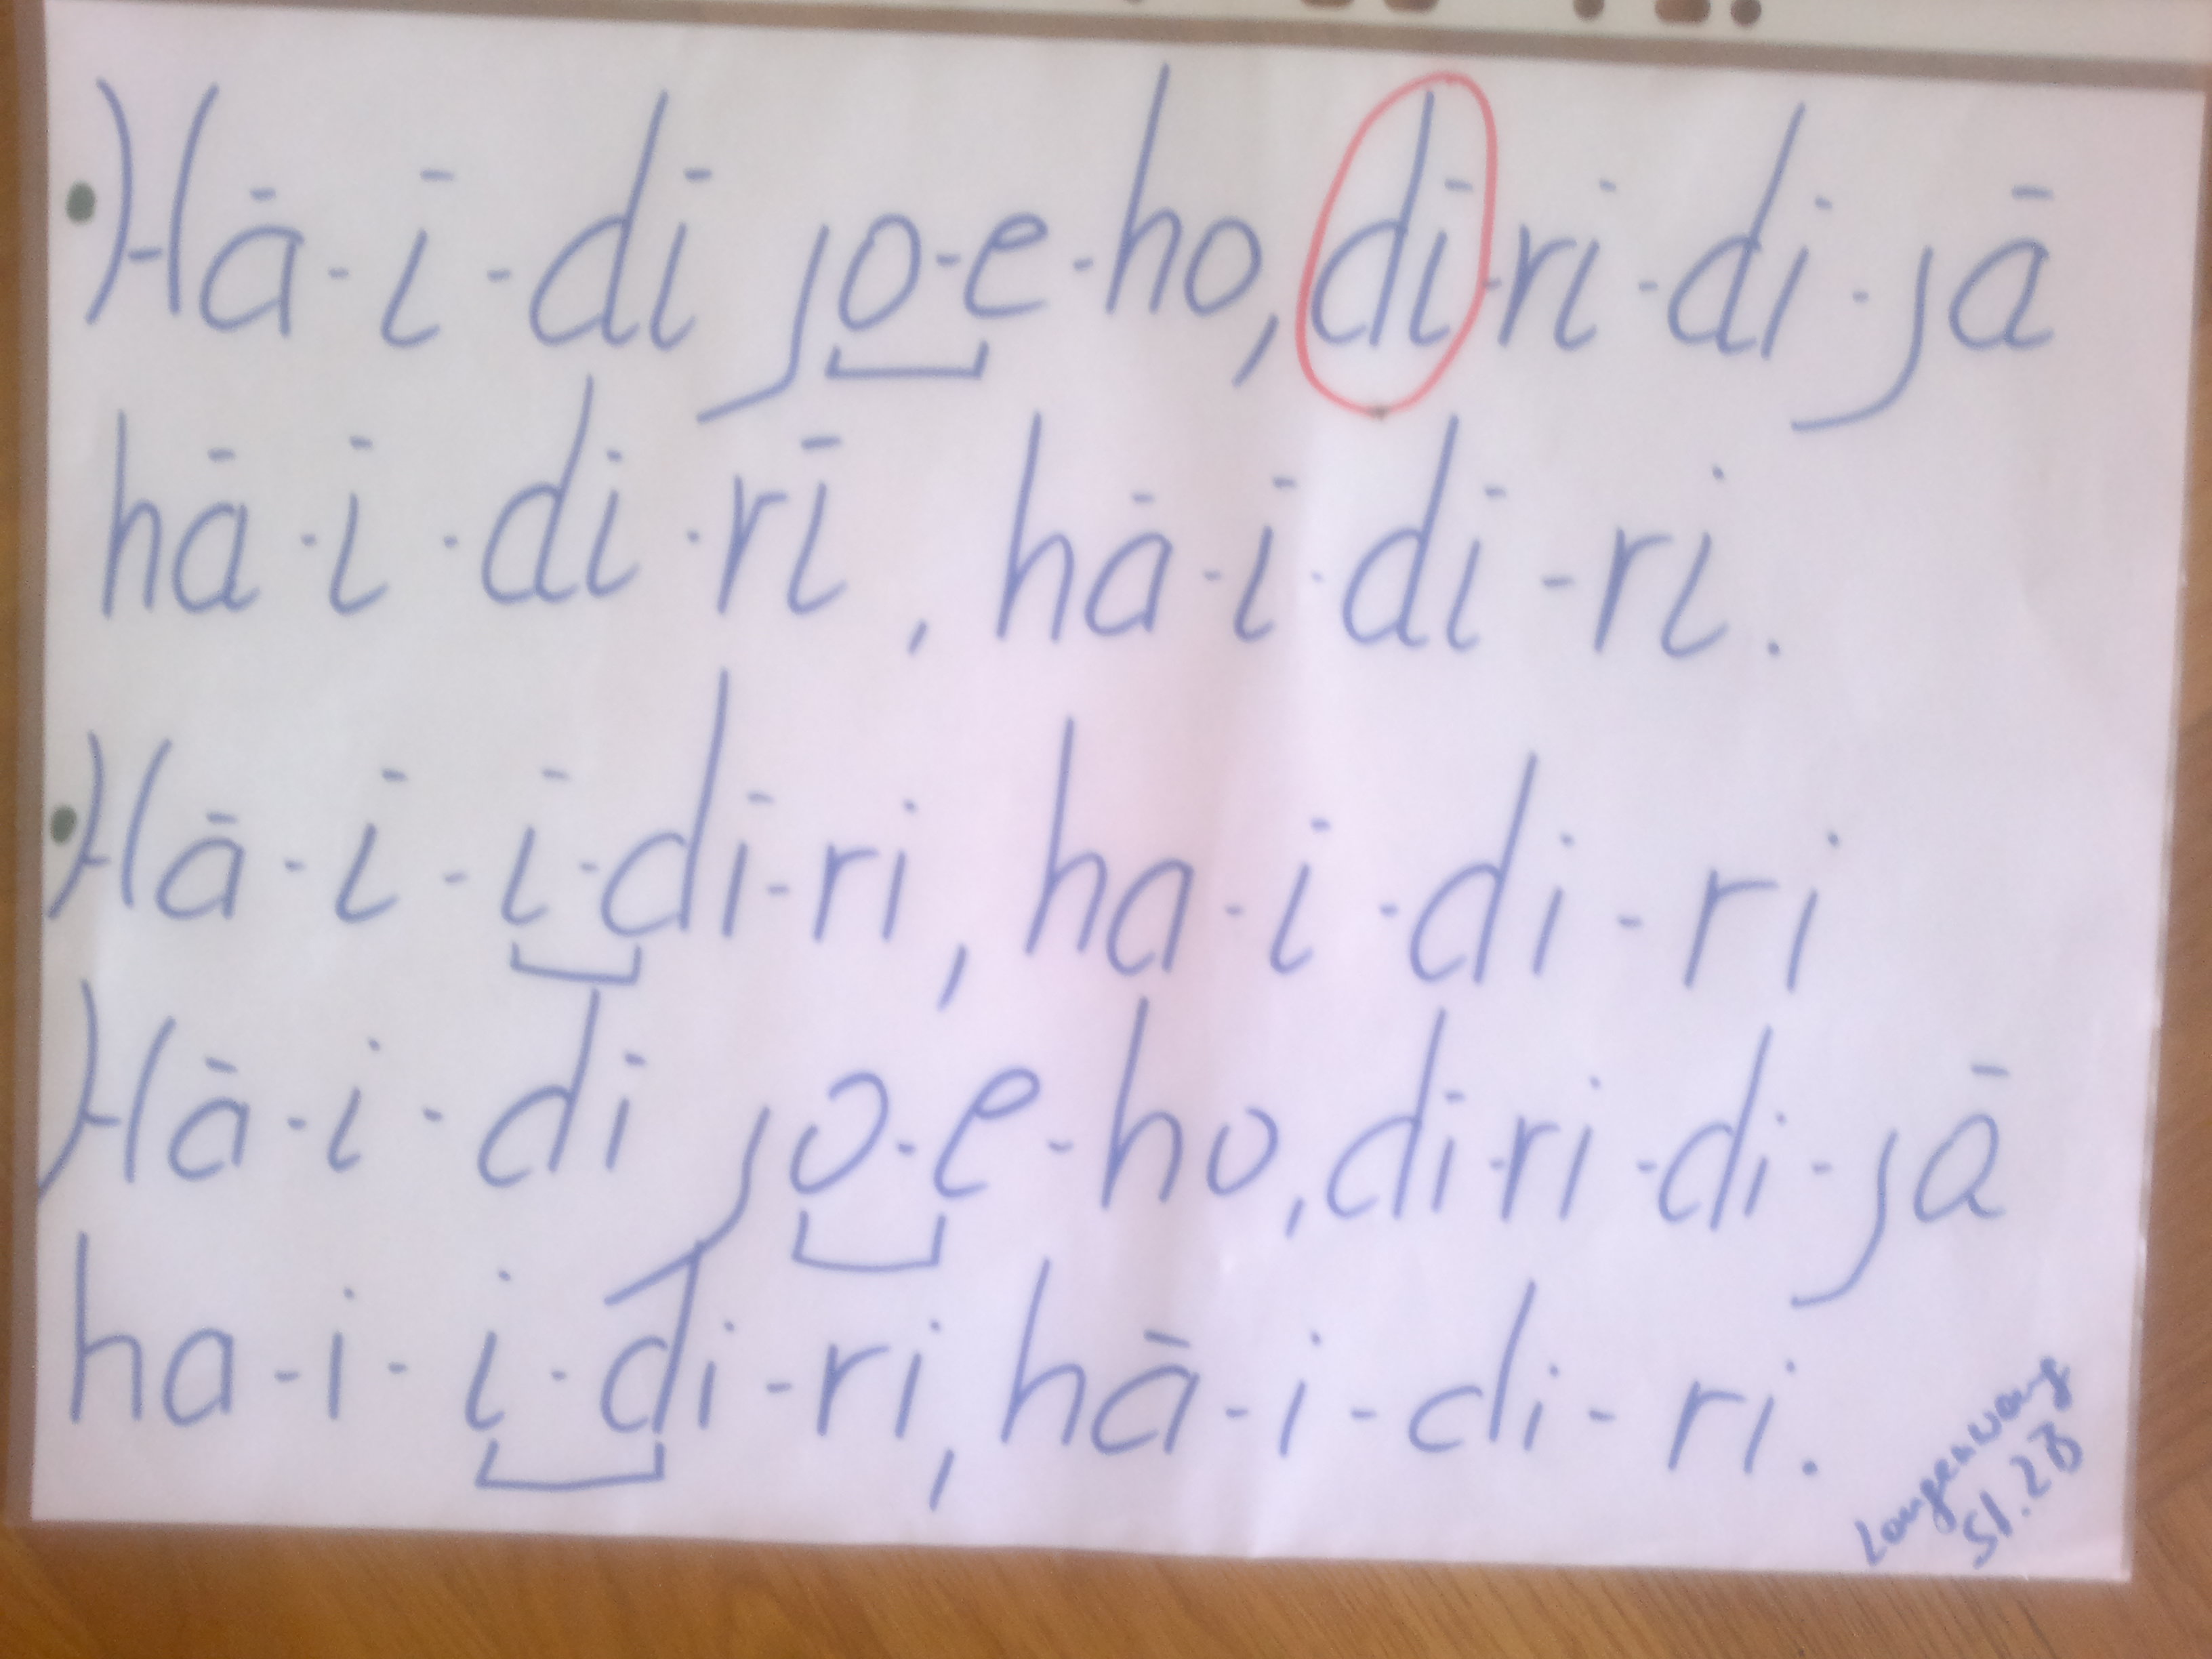 Hā-ī-dī jo-e-ho, dī-ri-di-jā
hā-ī-di-rī, hā-ī-dī-ri.
Hā-ī-ī-dī-ri, ha-ī-di-ri
Hā-i-dī jo-e-ho, dī-ri-di-jā
ha-i-i-di-ri, hā-i-di-ri.
Langenwang
Sl. 2B